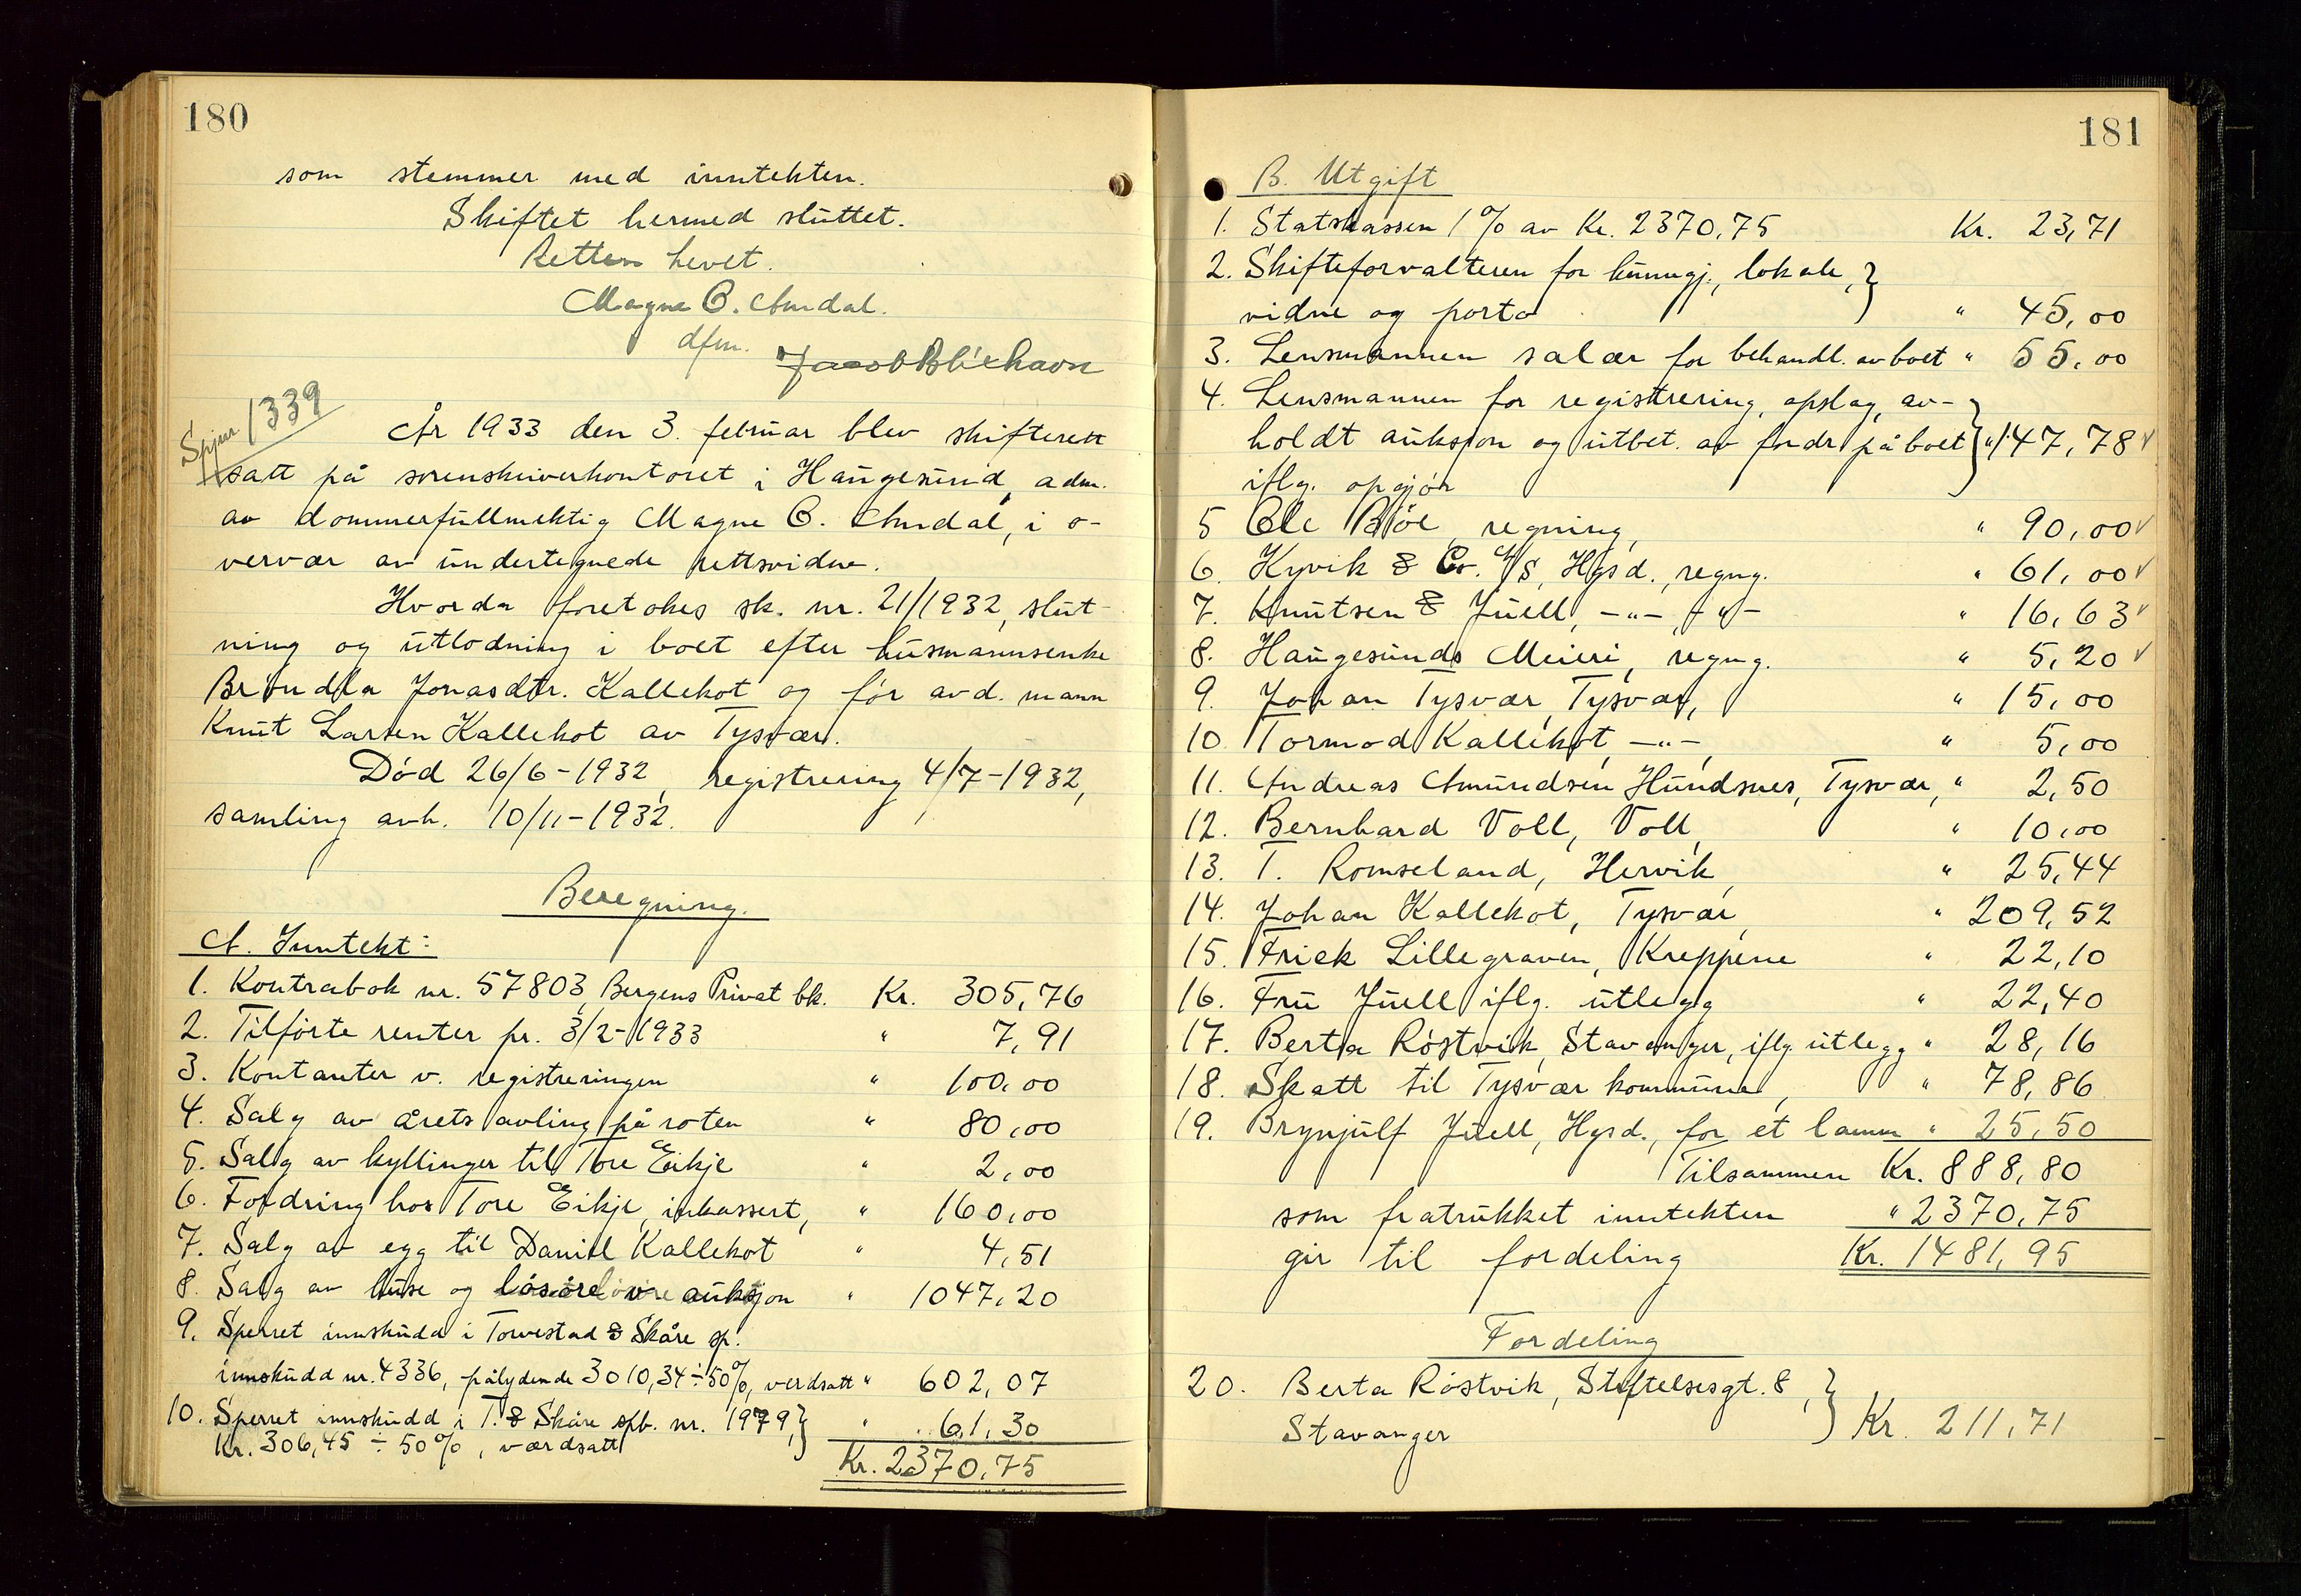 180
som stemmer med inntekten.
Skiftet hermed sluttet.
Retten hevet.
Magne O. Aundal.
dfm.
Spjur 1339
År 1933 den 3. februar blev skifterett
satt på sorenskriverkontoret i Haugesund, adm.
av dommerfullmektig Magne O. Aundal, i o-
vervær av undertegnede rettsvidne.
Hvorda foretokes sk. nr. 21/1932, slut-
ning og utlodning i boet efter husmannsenke
Brondla Jonasdtr. Kallekot og før avd. mann
Knut Larsen Kallekot av Tysvær.
Død 26/6-1932, registrering 4/7-1932,
samling avh. 10/11-1932.
Beregning.
A. Inntekt:
1. Kontrabok nr. 57803, Bergens Privat bk. Kr. 305,76
2. Tilførte renter pr. 3/2-1933 " 7,91
3. Kontanter v. registreringen " 100,00
4. Salg av årets avling på roten " 80,00
5. Salg av kyllinger til Tore Eikje " 2,00
6. Fordring hos Tore Eikje, inkassert, " 160,00
7. Salg av egg til Daniel Kallekot " 4,51
8. Salg av huse og løsøre v auksjon " 1047,20
9. Sperret innskudd i Torvestad & Skåre sp.
innskudd nr. 4336, pålydende 3010,34 ÷ 50%, verdsatt " 602,07
10. Sperret innskudd i T. & Skåre spb. nr. 1979, } " 61,30
Kr. 306,45 ÷ 50%, værdsatt
Kr. 2370,75
181
B. Utgift
1. Statskassen 1% av Kr. 2370,75 Kr. 23,71
2. Skifteforvalteren for kunngj., lokale, }
vidne og porto " 45,00
3. Lensmannen salær for behandl. av boet " 55,00
4. Lensmannen for registrering, opslag, av- }
holdt auksjon og utbet. av fordr. på boet " 147,78 √
iflg. opgjør
5 Ole Bøe, regning, " 90,00 √
6. Kyvik & Co. A/S, Hgsd., regng. " 61,00 √
7. Knutsen & Juell, -"-, -"- " 16,63 √
8. Haugesunds Meieri, regng. " 5,20 √
9. Johan Tysvær, Tysvær, " 15,00
10. Tormod Kallekot, -"-, " 5,00
11. Andreas Amundsen Hundsnes, Tysvær, " 2,50
12. Bernhard Voll, Voll, " 10,00
13. T. Romseland, Hervik, " 25,44
14. Johan Kallekot, Tysvær, " 209,52
15. Frick Lillegraven, Kreppene " 22,10
16. Fru Juell iflg. utlegg " 22,40
17. Berta Røstvik, Stavanger, iflg. utlegg " 28,16
18. Skatt til Tysvær kommune, " 78,86
19. Brynjulf Juell, Hgsd., for et lamm " 25,50
Tilsammen Kr. 888,80
som fratrukket inntekten " 2370,75
gir til fordeling Kr. 1481,95
Fordeling
20. Berta Røstvik, Stiftelsesgt. 8, }
Stavanger Kr. 211,71